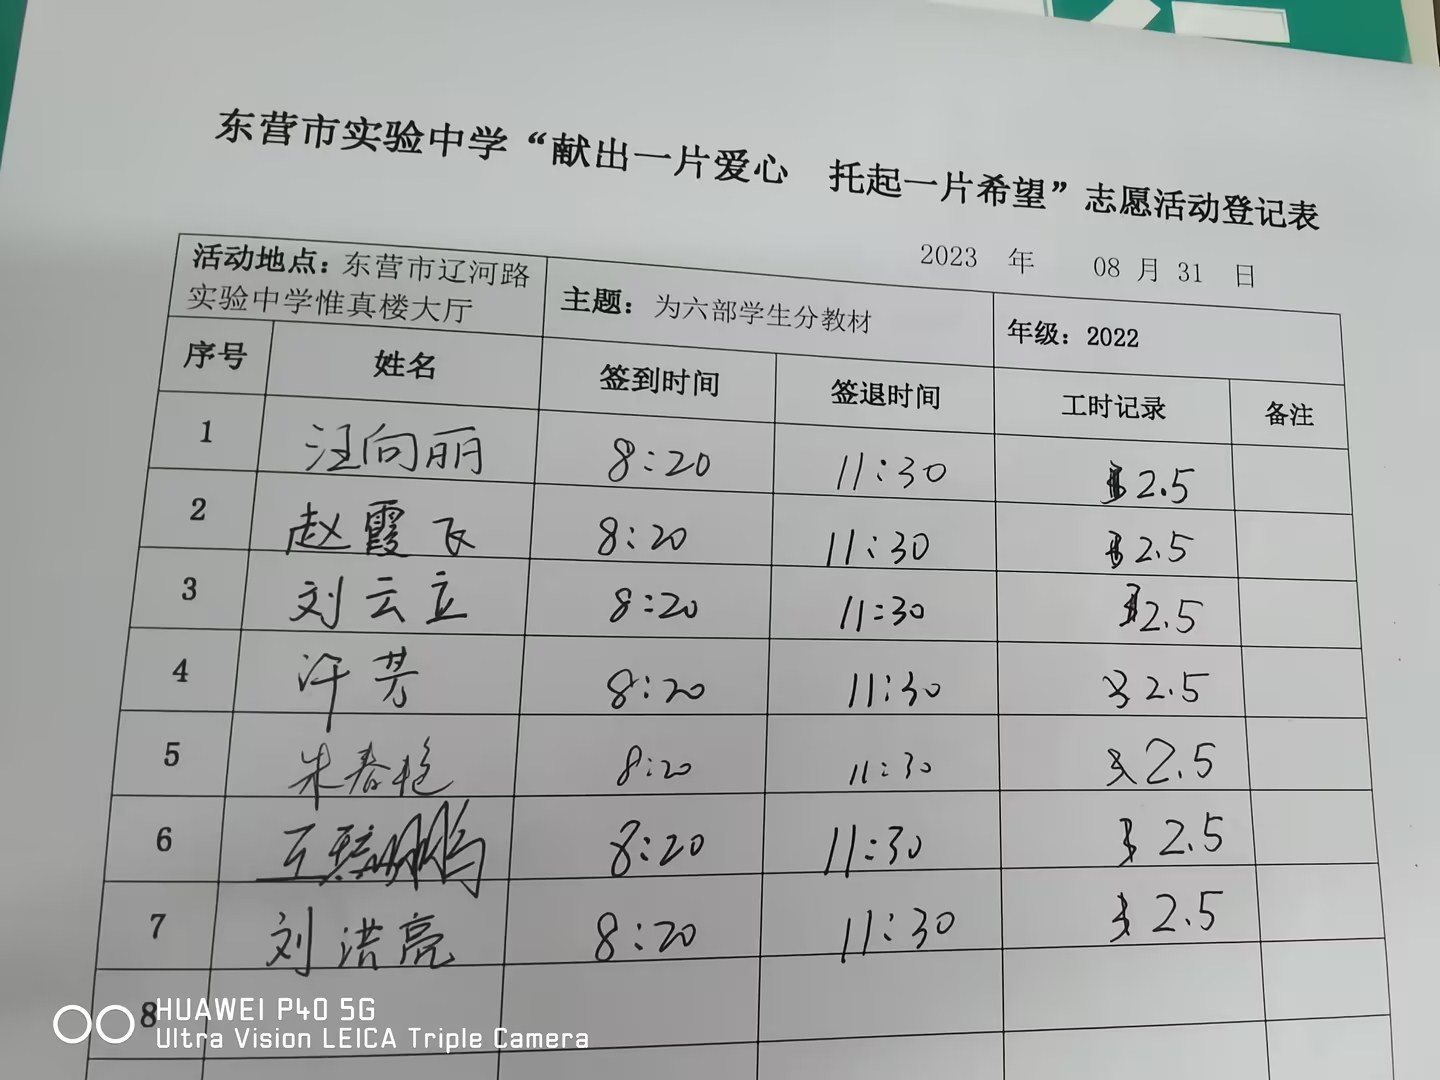 东营市实验中学“献出一片爱心 托起一片希望”志愿活动登记表
2023 年 08 月 31 日
活动地点：东营市辽河路
实验中学惟真楼大厅
主题：为六部学生分教材
年级：2022
序号 姓名 签到时间 签退时间 工时记录 备注
1 汪向丽 8:20 11:30 2.5
2 赵霞飞 8:20 11:30 2.5
3 刘云立 8:20 11:30 2.5
4 许芳 8:20 11:30 2.5
5 朱春艳 8:20 11:30 2.5
6 8:20 11:30 2.5
7 刘洪亮 8:20 11:30 2.5
8
HUAWEI P40 5G
Ultra Vision LEICA Triple Camera